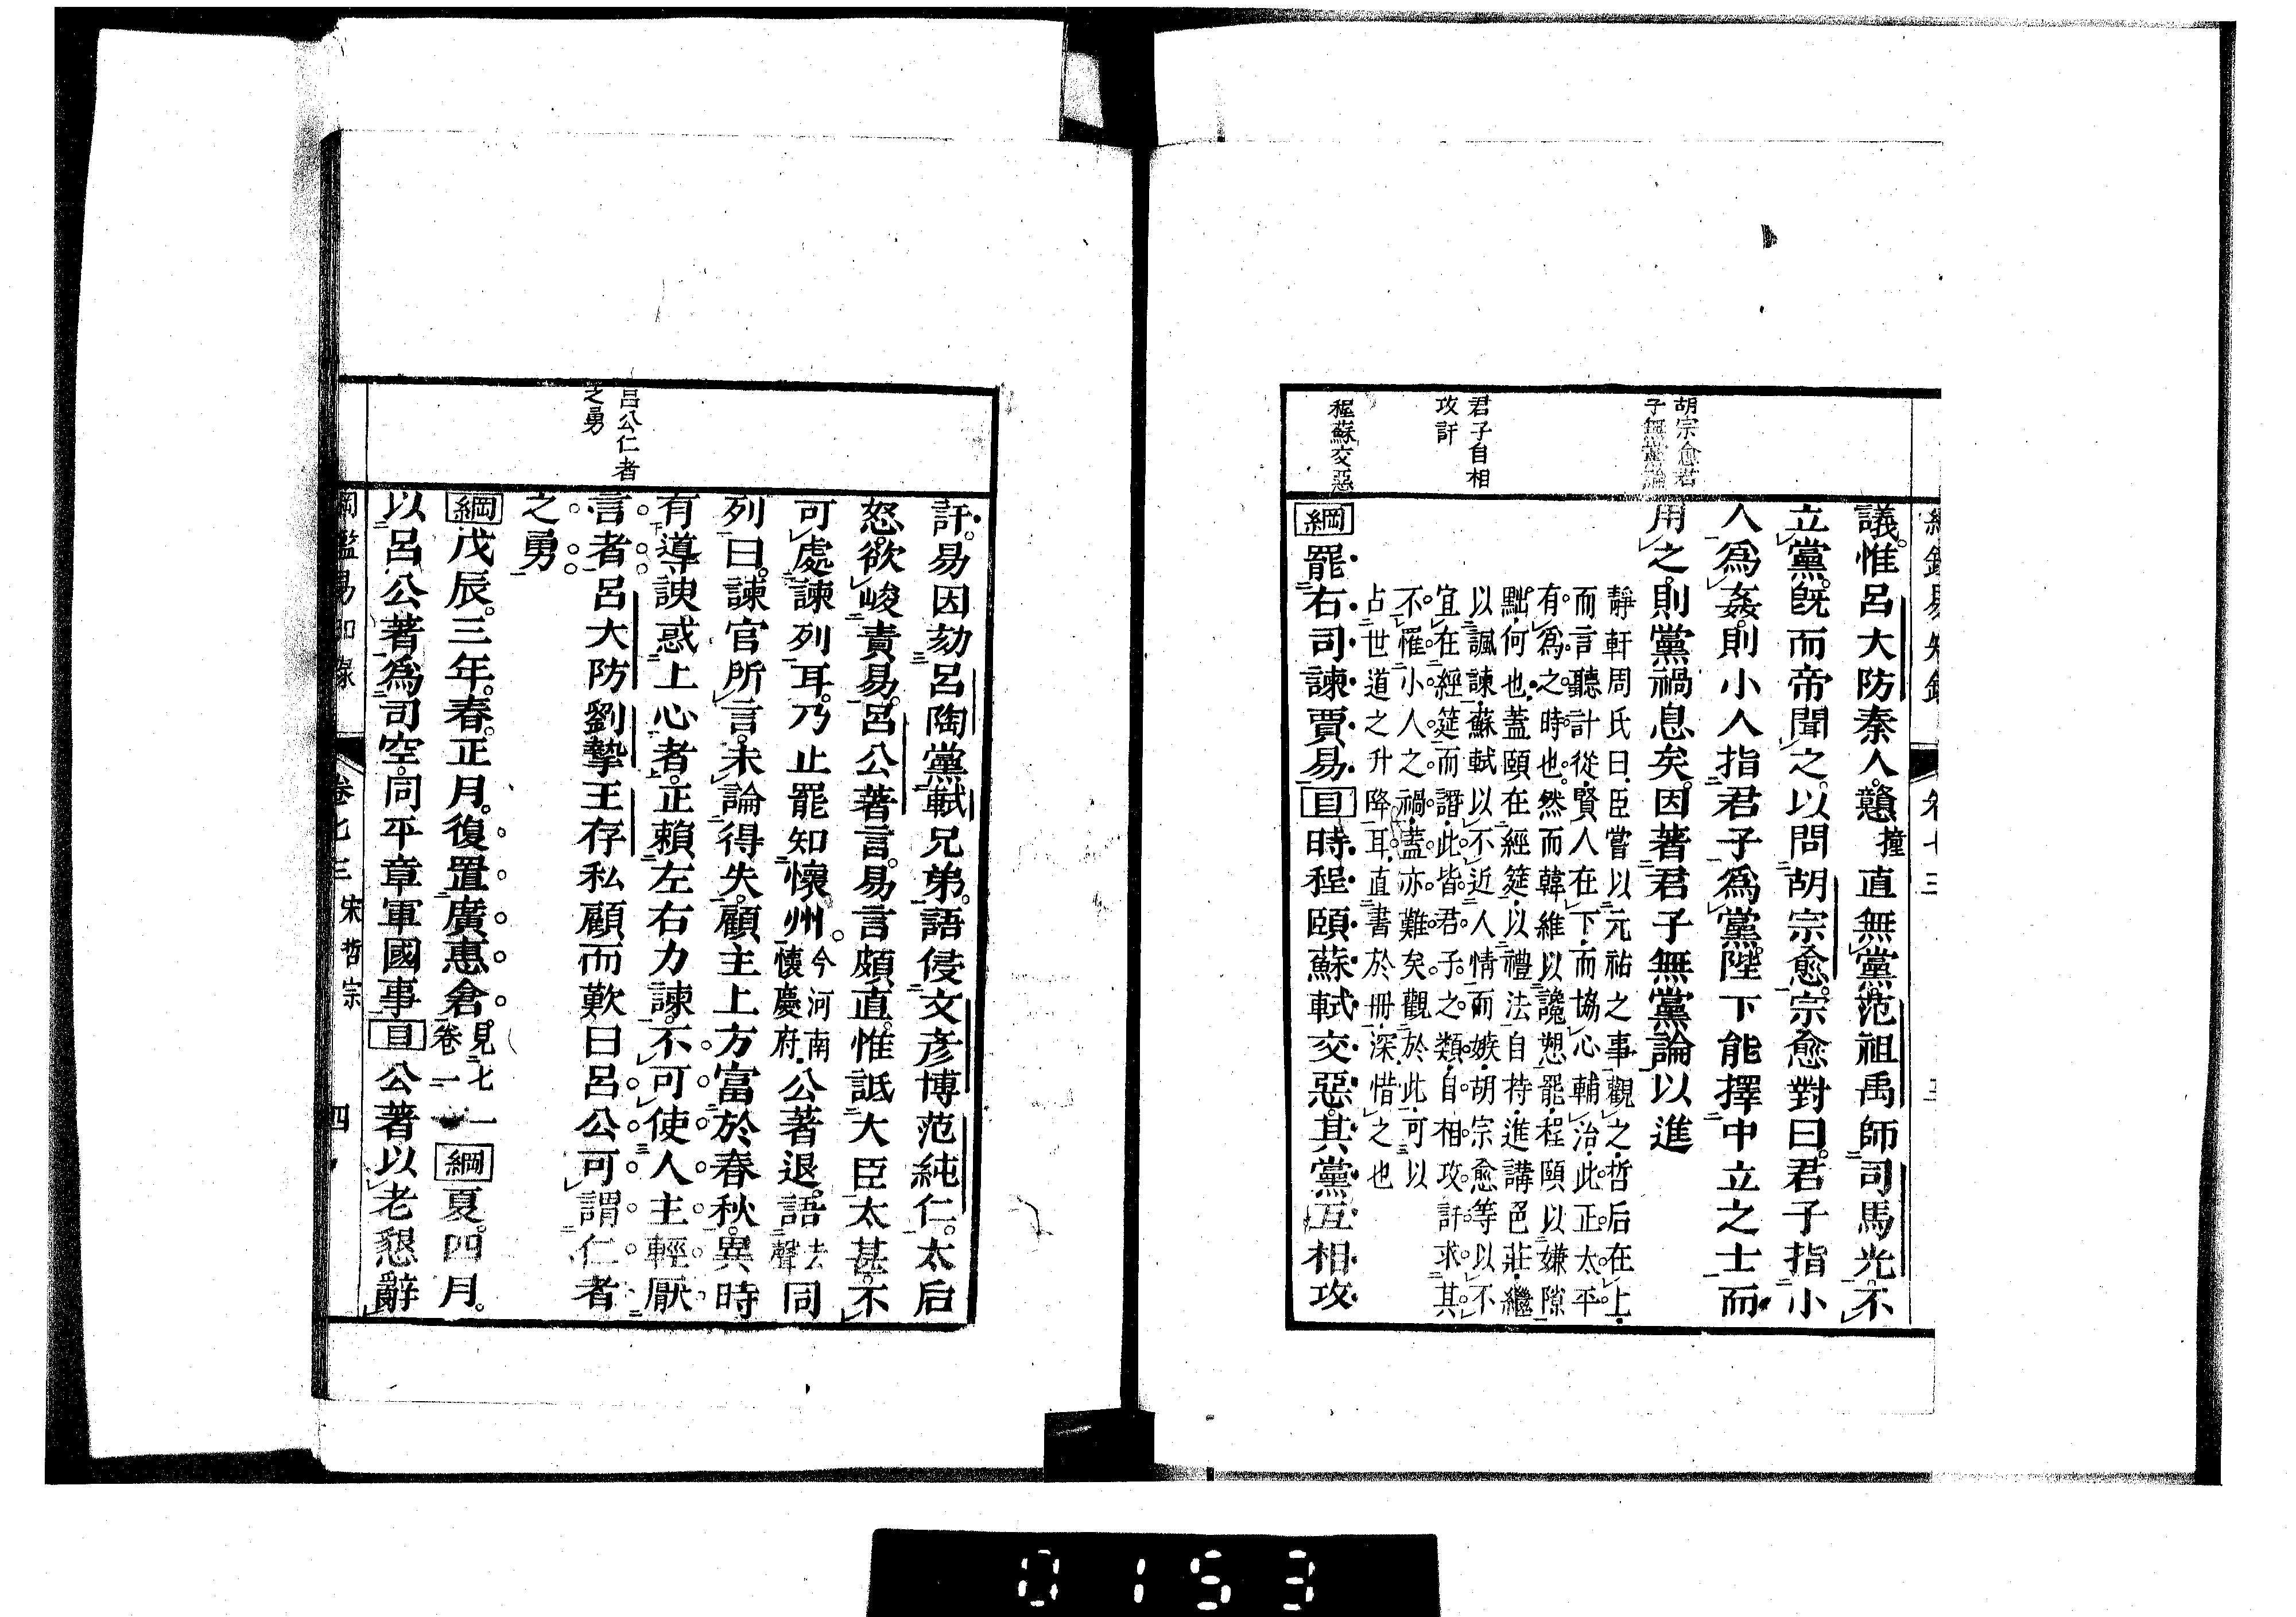 胡宗愈君
子無黨論
君子自相
攻訐
程蘇交惡
議。惟呂大防秦人。戇撞直無黨。范祖禹師司馬光。不
立黨。旣而帝聞之。以問胡宗愈。宗愈對曰。君子指小
人爲姦。則小人指君子爲黨。陛下能擇中立之士而
用之。則黨禍息矣。因著君子無黨論以進
靜軒周氏曰。臣嘗以元祐之事觀之。哲后在上。
而言聽計從。賢人在下。而協心輔治。此正太平
有爲之時也。然而韓維以讒愬罷。程頤以嫌隙
黜。何也。蓋頤在經筵。以禮法自持。進講色莊。繼
以諷諫。蘇軾以不近人情而嫉。胡宗愈等以不
宜在經筵而譖。此皆君子之類。自相攻訐。求其
不罹小人之禍。蓋亦難矣。觀於此。可以
占世道之升降耳。直書於冊。深惜之也
綱罷右司諫賈易目時程頤蘇軾交惡。其黨互相攻
呂公仁者
之勇
訐。易因劾呂陶黨軾兄弟。語侵文彥博范純仁。太后
怒。欲峻責易。呂公著言。易言頗直。惟詆大臣太甚。不
可處諫列耳。乃止罷知懷州。今河南懷慶府。公著退。語去聲同
列曰。諫官所言。未論得失。顧主上方富於春秋。異時
有導諛惑上心者。正賴左右力諫。不可使人主輕厭
言者。呂大防劉摯王存私顧而歎曰。呂公可謂仁者
之勇
綱戊辰。三年。春。正月。復置廣惠倉。見七一卷一綱夏。四月。
以呂公著爲司空。同平章軍國事目公著以老懇辭
卷七三 宋哲宗 四